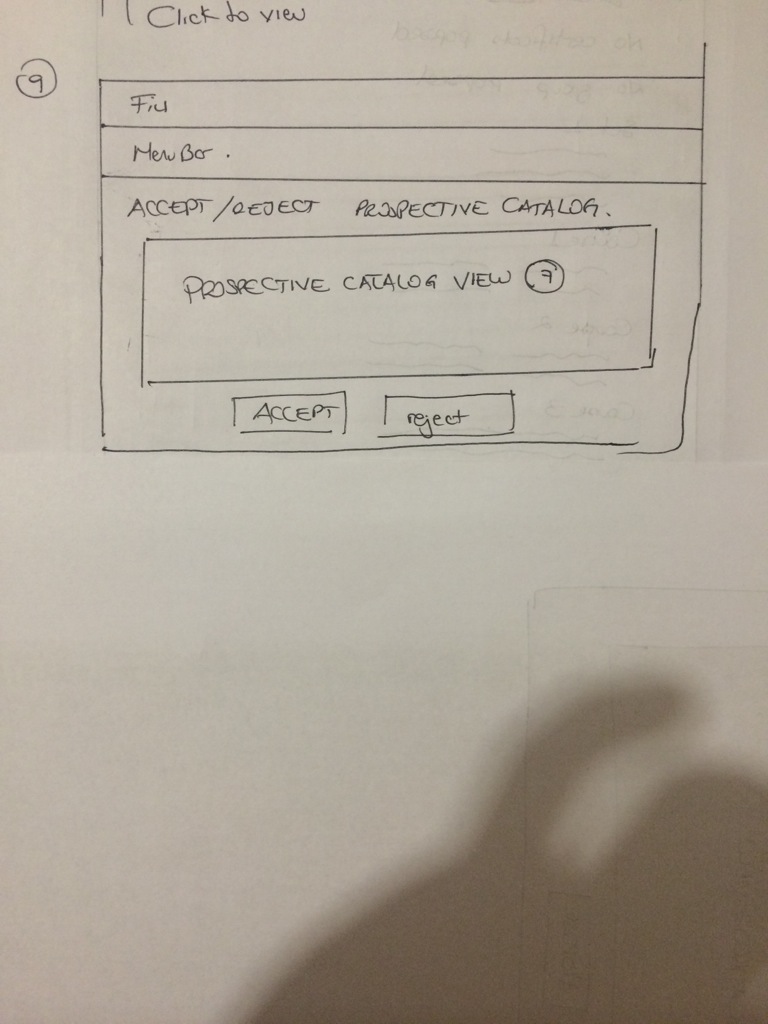 Click to view
9
FIU
MenuBar.
ACCEPT/REJECT PROSPECTIVE CATALOG.
PROSPECTIVE CATALOG VIEW 7
ACCEPT
reject